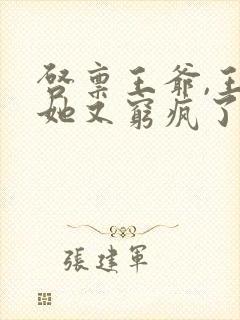 启禀王爷,王
她又窮疯了
張建軍